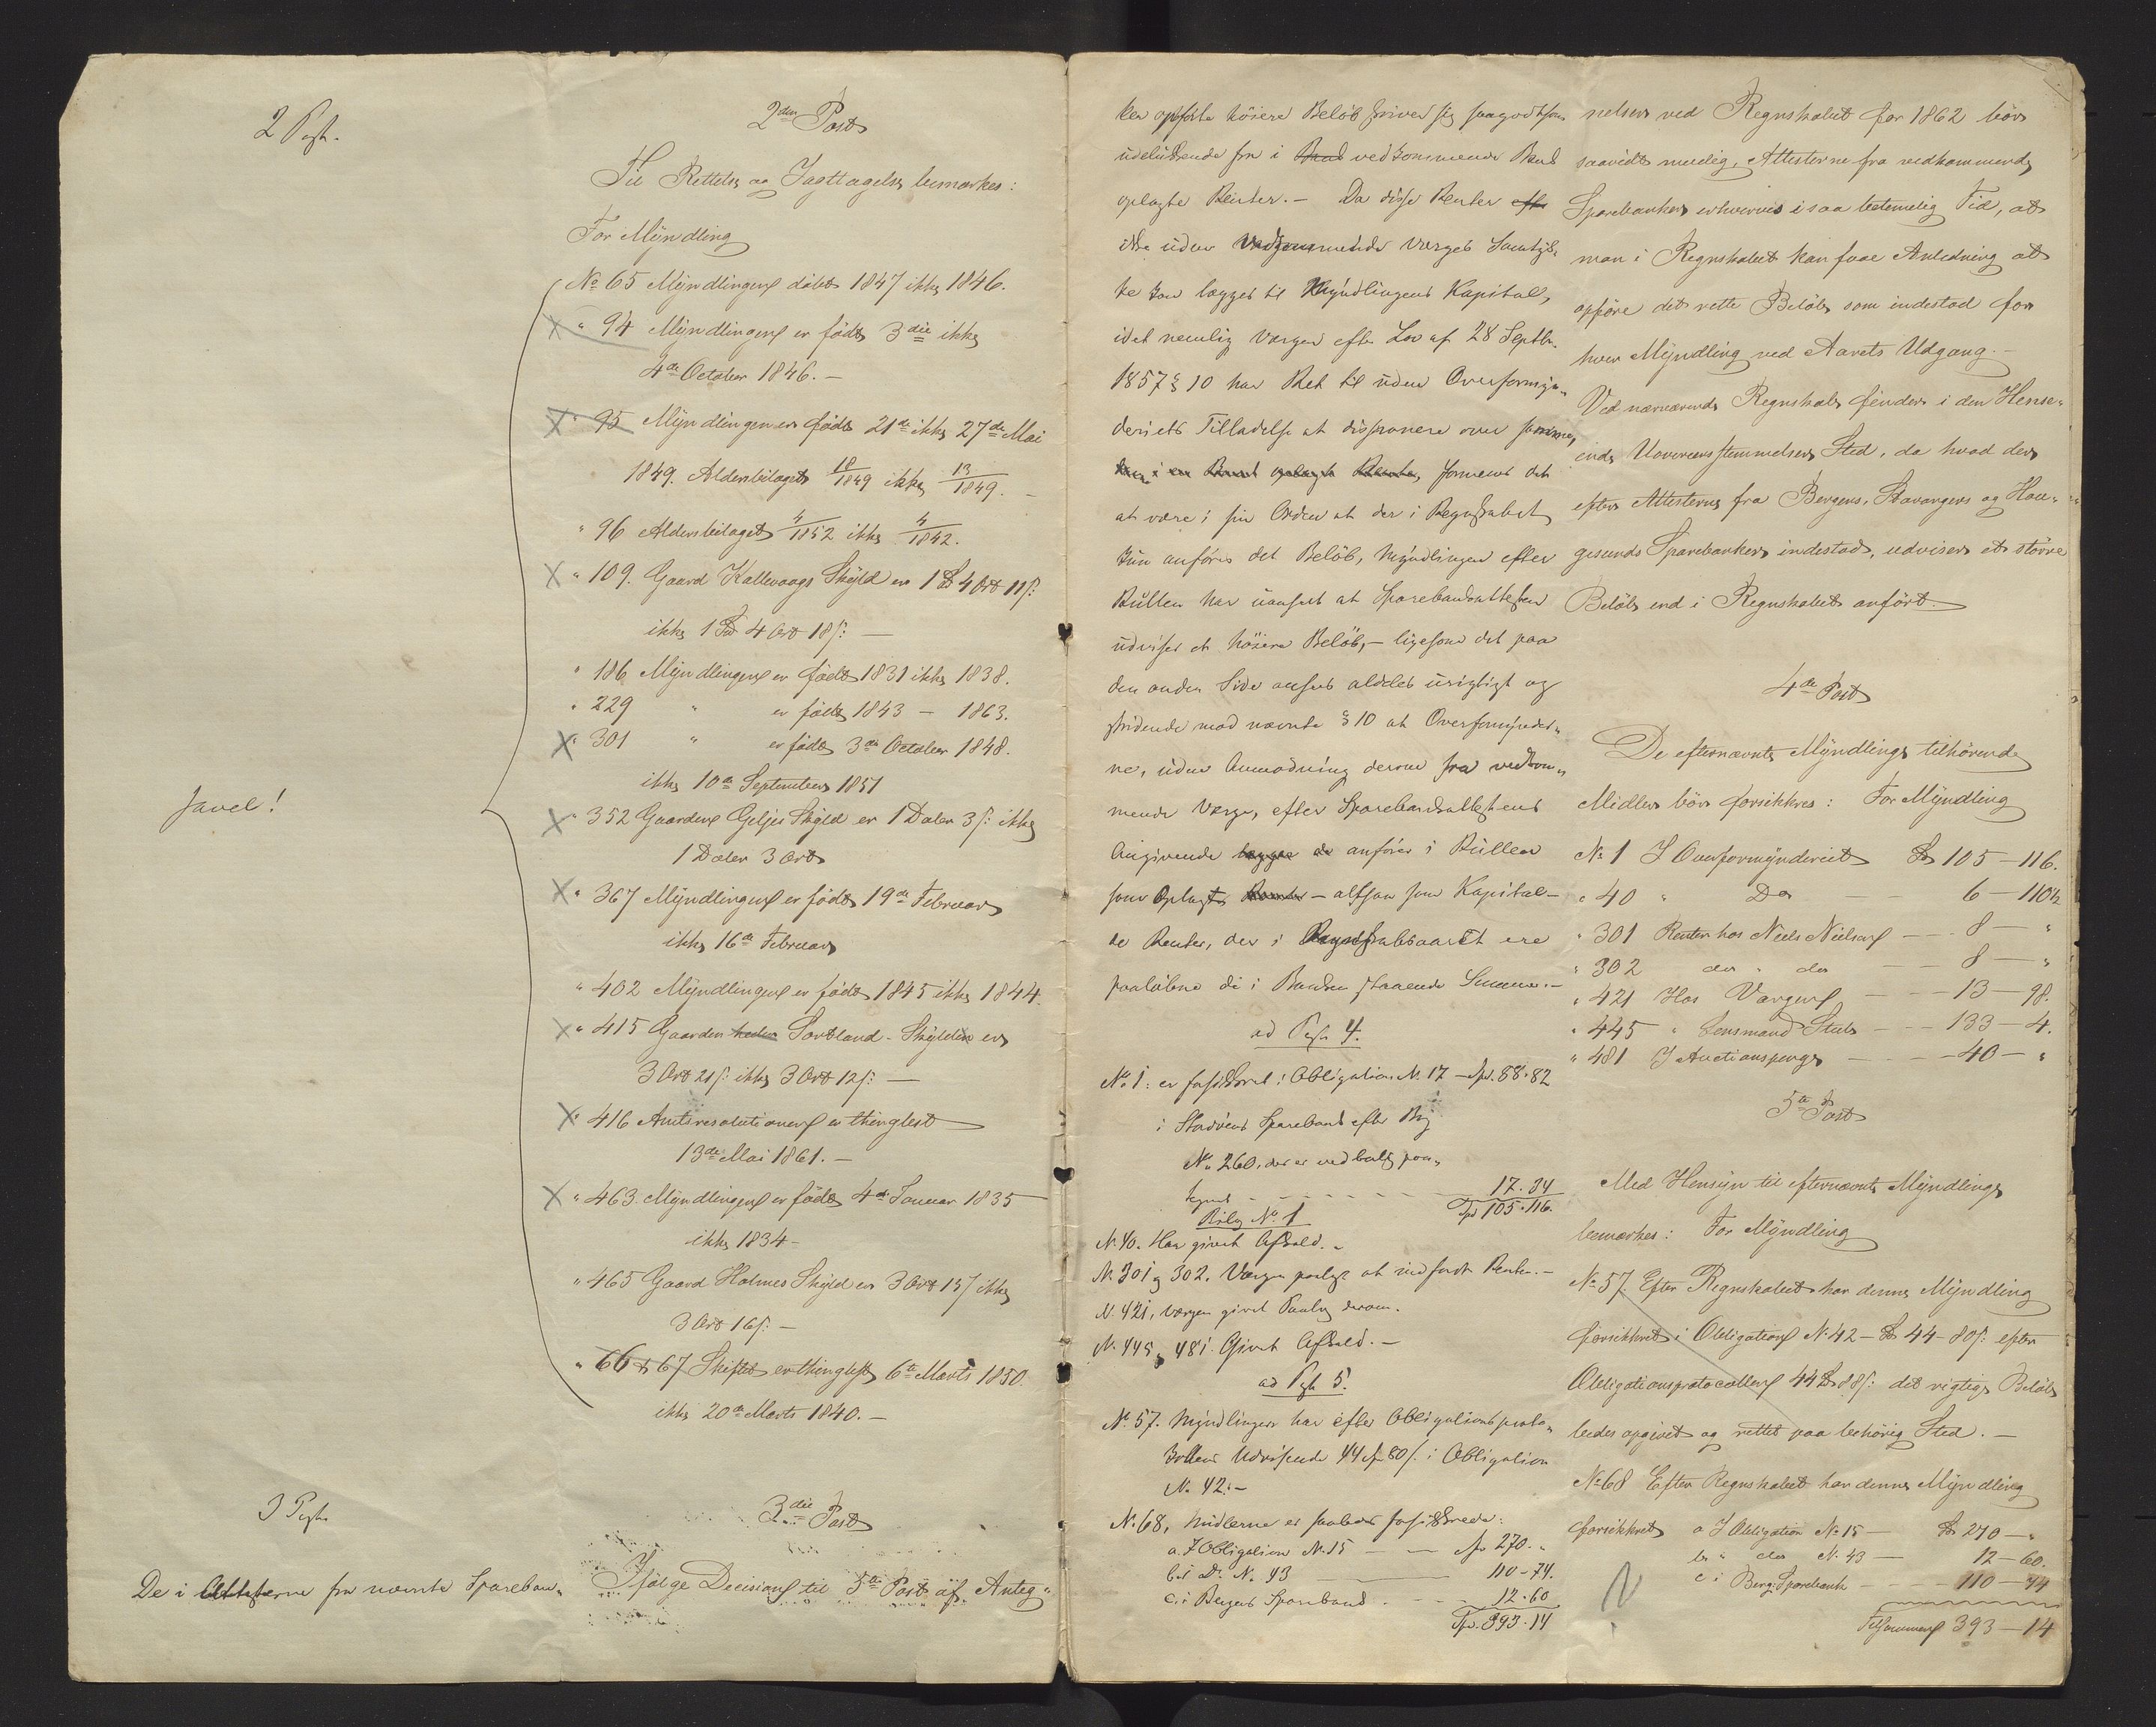 2 Post.
Javel!
3 Post
De i Attesterne fra nævnte Spareban-
2den Post
Til Rettelse og Iagttagelse bemærkes:
For Myndling
No 65 Myndlingen døbt 1847 ikke 1846.
" 94 Myndlingen er født 3die ikke
4de October 1846. —
" 95 Myndlingen er født 21de ikke 27de Mai
1849. Aldersbilaget 18/1849 ikke 13/1849. —
" 96 Aldersbilaget 4/1852 ikke 4/1842.
" 109. Gaard Kallevaags Skyld er 1 Dr 4 Ort 11 s:
ikke 1 Dr 4 Ort 18 s: —
" 186 Myndlingen er født 1831 ikke 1838.
" 229 " er født 1843 — 1863.
" 301 " er født 3die October 1848.
ikke 10de September 1851
" 352 Gaarden Geljes Skyld er 1 Daler 3 s: ikke
1 Daler 3 Ort
" 367 Myndlingen er født 19de Februar
ikke 16de Februar
" 402 Myndlingen er født 1845 ikke 1844.
" 415 Gaarden heder Sortland - Skylden er
3 Ort 21 s: ikke 3 Ort 12 s: —
" 416 Amtsresolutionen er thinglest
13de Mai 1861. —
" 463. Myndlingen er født 4de Januar 1835
ikke 1834 —
" 465 Gaard Holmes Skyld er 3 Ort 15 s ikke
3 Ort 16 s: —
" 66 & 67 Skiftet er thinglyst 6te Marts 1850
ikke 20de Marts 1840. —
3die Post
Ifølge Decisionen til 5te Post af Anteg-
ker opførte høiere Beløb skriver sig saagodtsom
udelukkende fra i Bank vedkommende Bank
oplagte Renter. — Da disse Renter efter
ikke uden Vedkommende Værges Samtyk-
ke kan lægges til Myndlingens Kapital,
idet nemlig Værgen efter Lov af 28 Septbr.
1857 § 10 har Ret til uden Overformyn-
deriets Tilladelse at disponere over samme,
i en Bank oplagte Renter, formenes det
at være i sin Orden at der i Regnskabet
kun anføres det Beløb, Myndlingen efter
Rullen har uanseet at Sparebankattesten
udviser et høiere Beløb, — ligesom det paa
den anden Side ansees aldeles urigtigt og
stridende mod nævnte § 10 at Overformynder-
ne, uden Anmodning derom fra vedkom-
mende Værge, efter Sparebankattestens
Angivende lægger de anføres i Rullen
som Oplagte Renter — altsaa som Kapital —
de Renter, der i Regnskabsaaret ere
paaløbne de i Banken staaende Summer. —
ad Post 4.
No 1: er forsikkret i Obligation N. 17 — Spd. 88. 82
i Stadens Sparebank efter Bog
No 260, der er vedbilag paa-
tegnet - - - - - - - 17. 34
Bilag No 1 Spd 105. 116.
N. 40. Har givet Afkald. —
N. 301 og 302. Værgen paalagt at indfordre Renten. —
N. 421, Værgen givet Paalæg derom.
N. 445 og 481. Givet Afkald. —
ad Post 5.
No 57. Myndlingen har efter Obligationsproto-
kollens Udvisende 44 Spd 80 s. i Obligation
N. 42. —
N. 68, Midlerne er saaledes forsikkrede:
a. I Obligation N. 15 — — Spd 270. "
b. i Do N. 43 — 110 - 74.
c. i Bergens Sparebank . - - - 12. 60
Spd. 393. 14
nelser ved Regnskabet for 1862 bør
saavidt mulig, Attesterne fra vedkommende
Sparebanker erhverves i saa betimelig Tid, at
man i Regnskabet kan faae Anledning at
opføre det rette Beløb som indestod for
hver Myndling ved Aarets Udgang. —
Ved nærværende Regnskab finder i den Hense-
ende Uoverensstemmelser Sted, da hvad der
efter Attesterne fra Bergens, Stavangers og Hau-
gesunds Sparebanker indestod, udviser et større
Beløb end i Regnskabet anført.
4de Post
De efternævnte Myndlinge tilhørende
Midler bør forsikkres: For Myndling
No 1 I Overformynderiet Spd 105 — 116.
" 40 " Do — — 6 — 110½
" 301 Renter hos Niels Nielsen — - 8 — "
" 302 do " do — — 8 — "
" 421 Hos Værgen — - - 13 — 98.
" 445 " Lensmand Stub — - - 133 — 4.
" 481 I Auctionspenge — — 40 — "
5te Post
Med Hensyn til efternævnte Myndlinge
bemærkes: For Myndling
No 57. Efter Regnskabet har denne Myndling
forsikkret i Obligation N. 42 — Spd 44 - 80 s: efter
Obligationsprotocollen 44 Spd 88 s: det rigtige Beløb
bedes opgivet og rettet paa behørig Sted. —
No 68 Efter Regnskabet har denne Myndling
forsikkret a I Obligation No 15 — Spd 270 — "
b " do N. 43 — 12 — 60.
c i Berg: Sparebank - - - 110 — 74
Tilsammen 393 — 14